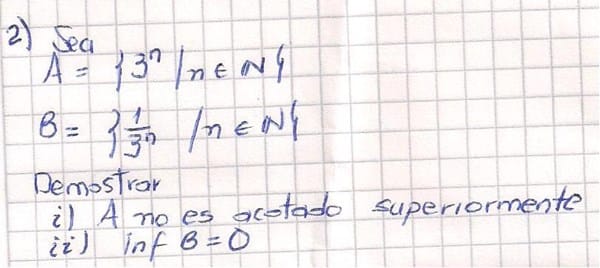 2) Sea
A = {3ⁿ / n ∈ ℕ}
B = {1/3ⁿ / n ∈ ℕ}
Demostrar
i) A no es acotado superiormente
ii) inf B = 0